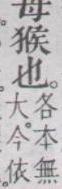 母猴也。
各本無
大。今依